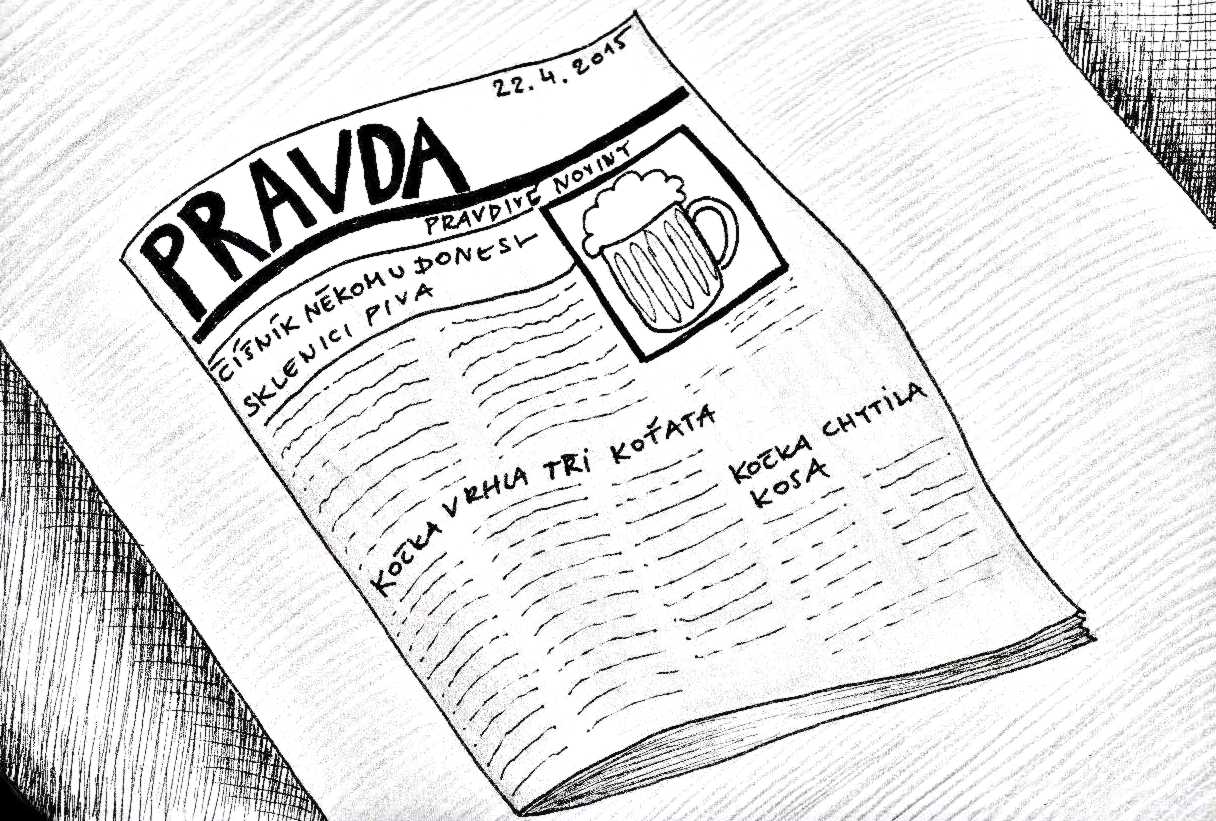 22.4.2015
PRAVDA
PRAVDIVÉ NOVINY
ČÍŠNÍK NĚKOMU DONESL
SKLENICI PIVA
KOČKA VRHLA TŘI KOŤATA
KOČKA CHYTILA
KOSA